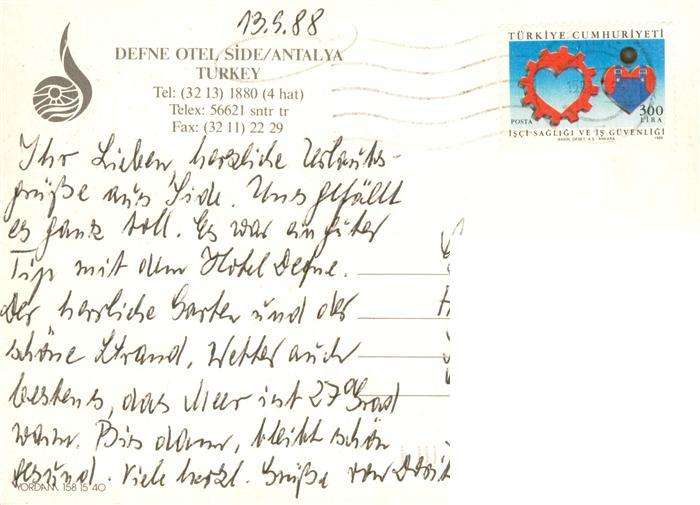 13.9.88
DEFNE OTEL SİDE/ANTALYA
TURKEY
Tel: (32 13) 1880 (4 hat)
Telex: 56621 sntr tr
Fax: (32 11) 22 29
TÜRKİYE CUMHURİYETİ
300
POSTA LİRA
İŞÇİ SAĞLIĞI VE İŞ GÜVENLİĞİ
Ihr Lieben, herzliche Urlaubs-
grüße aus Side. Uns gefällt
es ganz toll. Es war ein guter
Tip mit dem Hotel Defne.
Der herrliche Garten und der
schöne Strand, Wetter auch
bestens, das Meer ist 27 Grad
warm. Bis dann, bleibt schön
gesund. Viele herzl. Grüße von
YORDAM 158 15 40